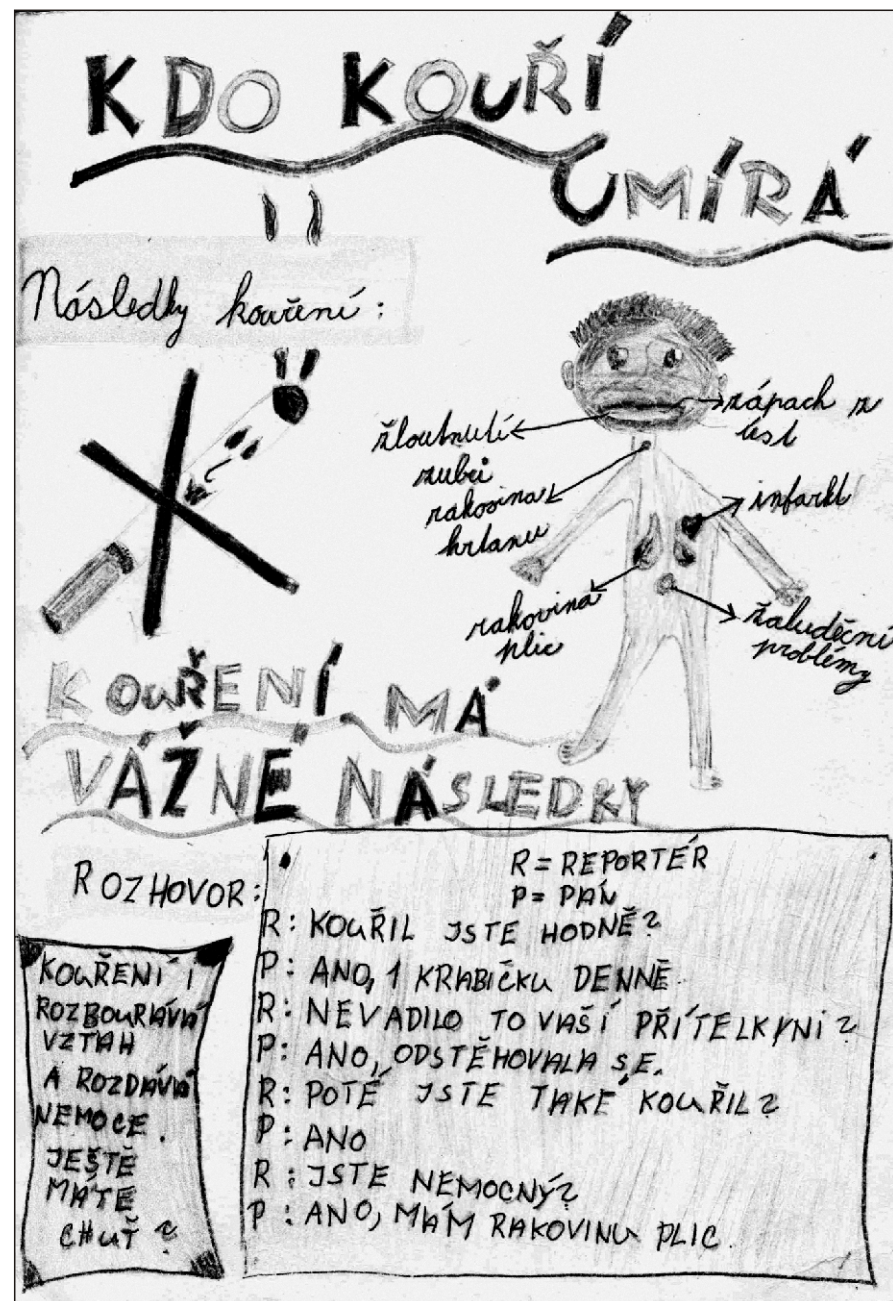 KDO KOUŘÍ
UMÍRÁ
Následky kouření:
zápach z
úst
žloutnutí
zubů
rakovina
hrtanu
infarkt
rakovina
plic
žaludeční
problémy
KOUŘENÍ MÁ
VÁŽNÉ NÁSLEDKY
ROZHOVOR:
R = REPORTÉR
P = PÁN
R: KOUŘIL JSTE HODNĚ?
P: ANO, 1 KRABIČKU DENNĚ
R: NEVADILO TO VAŠÍ PŘÍTELKYNI?
P: ANO, ODSTĚHOVALA SE.
R: POTÉ JSTE TAKÉ KOUŘIL?
P: ANO
R: JSTE NEMOCNÝ?
P: ANO, MÁM RAKOVINU PLIC
KOUŘENÍ I
ROZBOURÁVÁ
VZTAH
A ROZDÁVÁ
NEMOCE.
JEŠTĚ
MÁTE
CHUŤ?